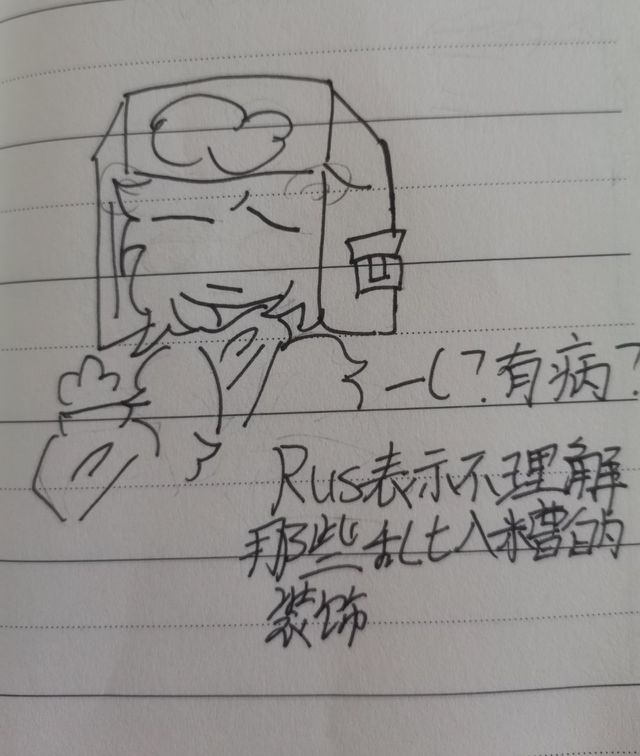 一(？有病？
Rus表示不理解
那些乱七八糟的
装饰